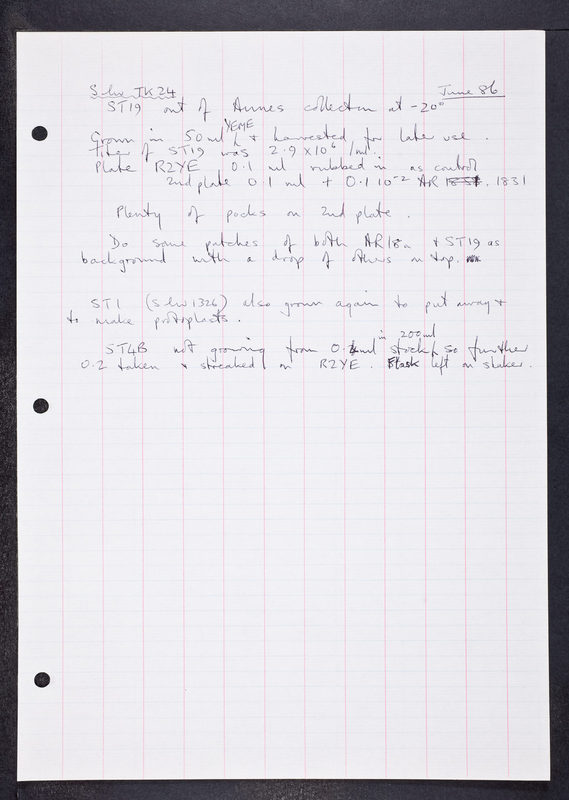 S. liv TK24 June 86
ST19 out of Annes collection at -20°
Grown in 50 ml YEME & harvested for later use.
Titer of ST19 was 2.9 x 10⁶ / ml.
Plate R2YE 0.1 ml rubbed in as control
2nd plate 0.1 ml + 0.1 10⁻² AR 1831
Plenty of pocks on 2nd plate.
Do some patches of both AR18a & ST19 as
background with a drop of others on top.
ST1 (S liv 1326) also grown again to put away &
to make protoplasts.
ST4B not growing from 0.2ml in 200ml stock so further
0.2 taken & streaked on R2YE. Flask left on shaker.